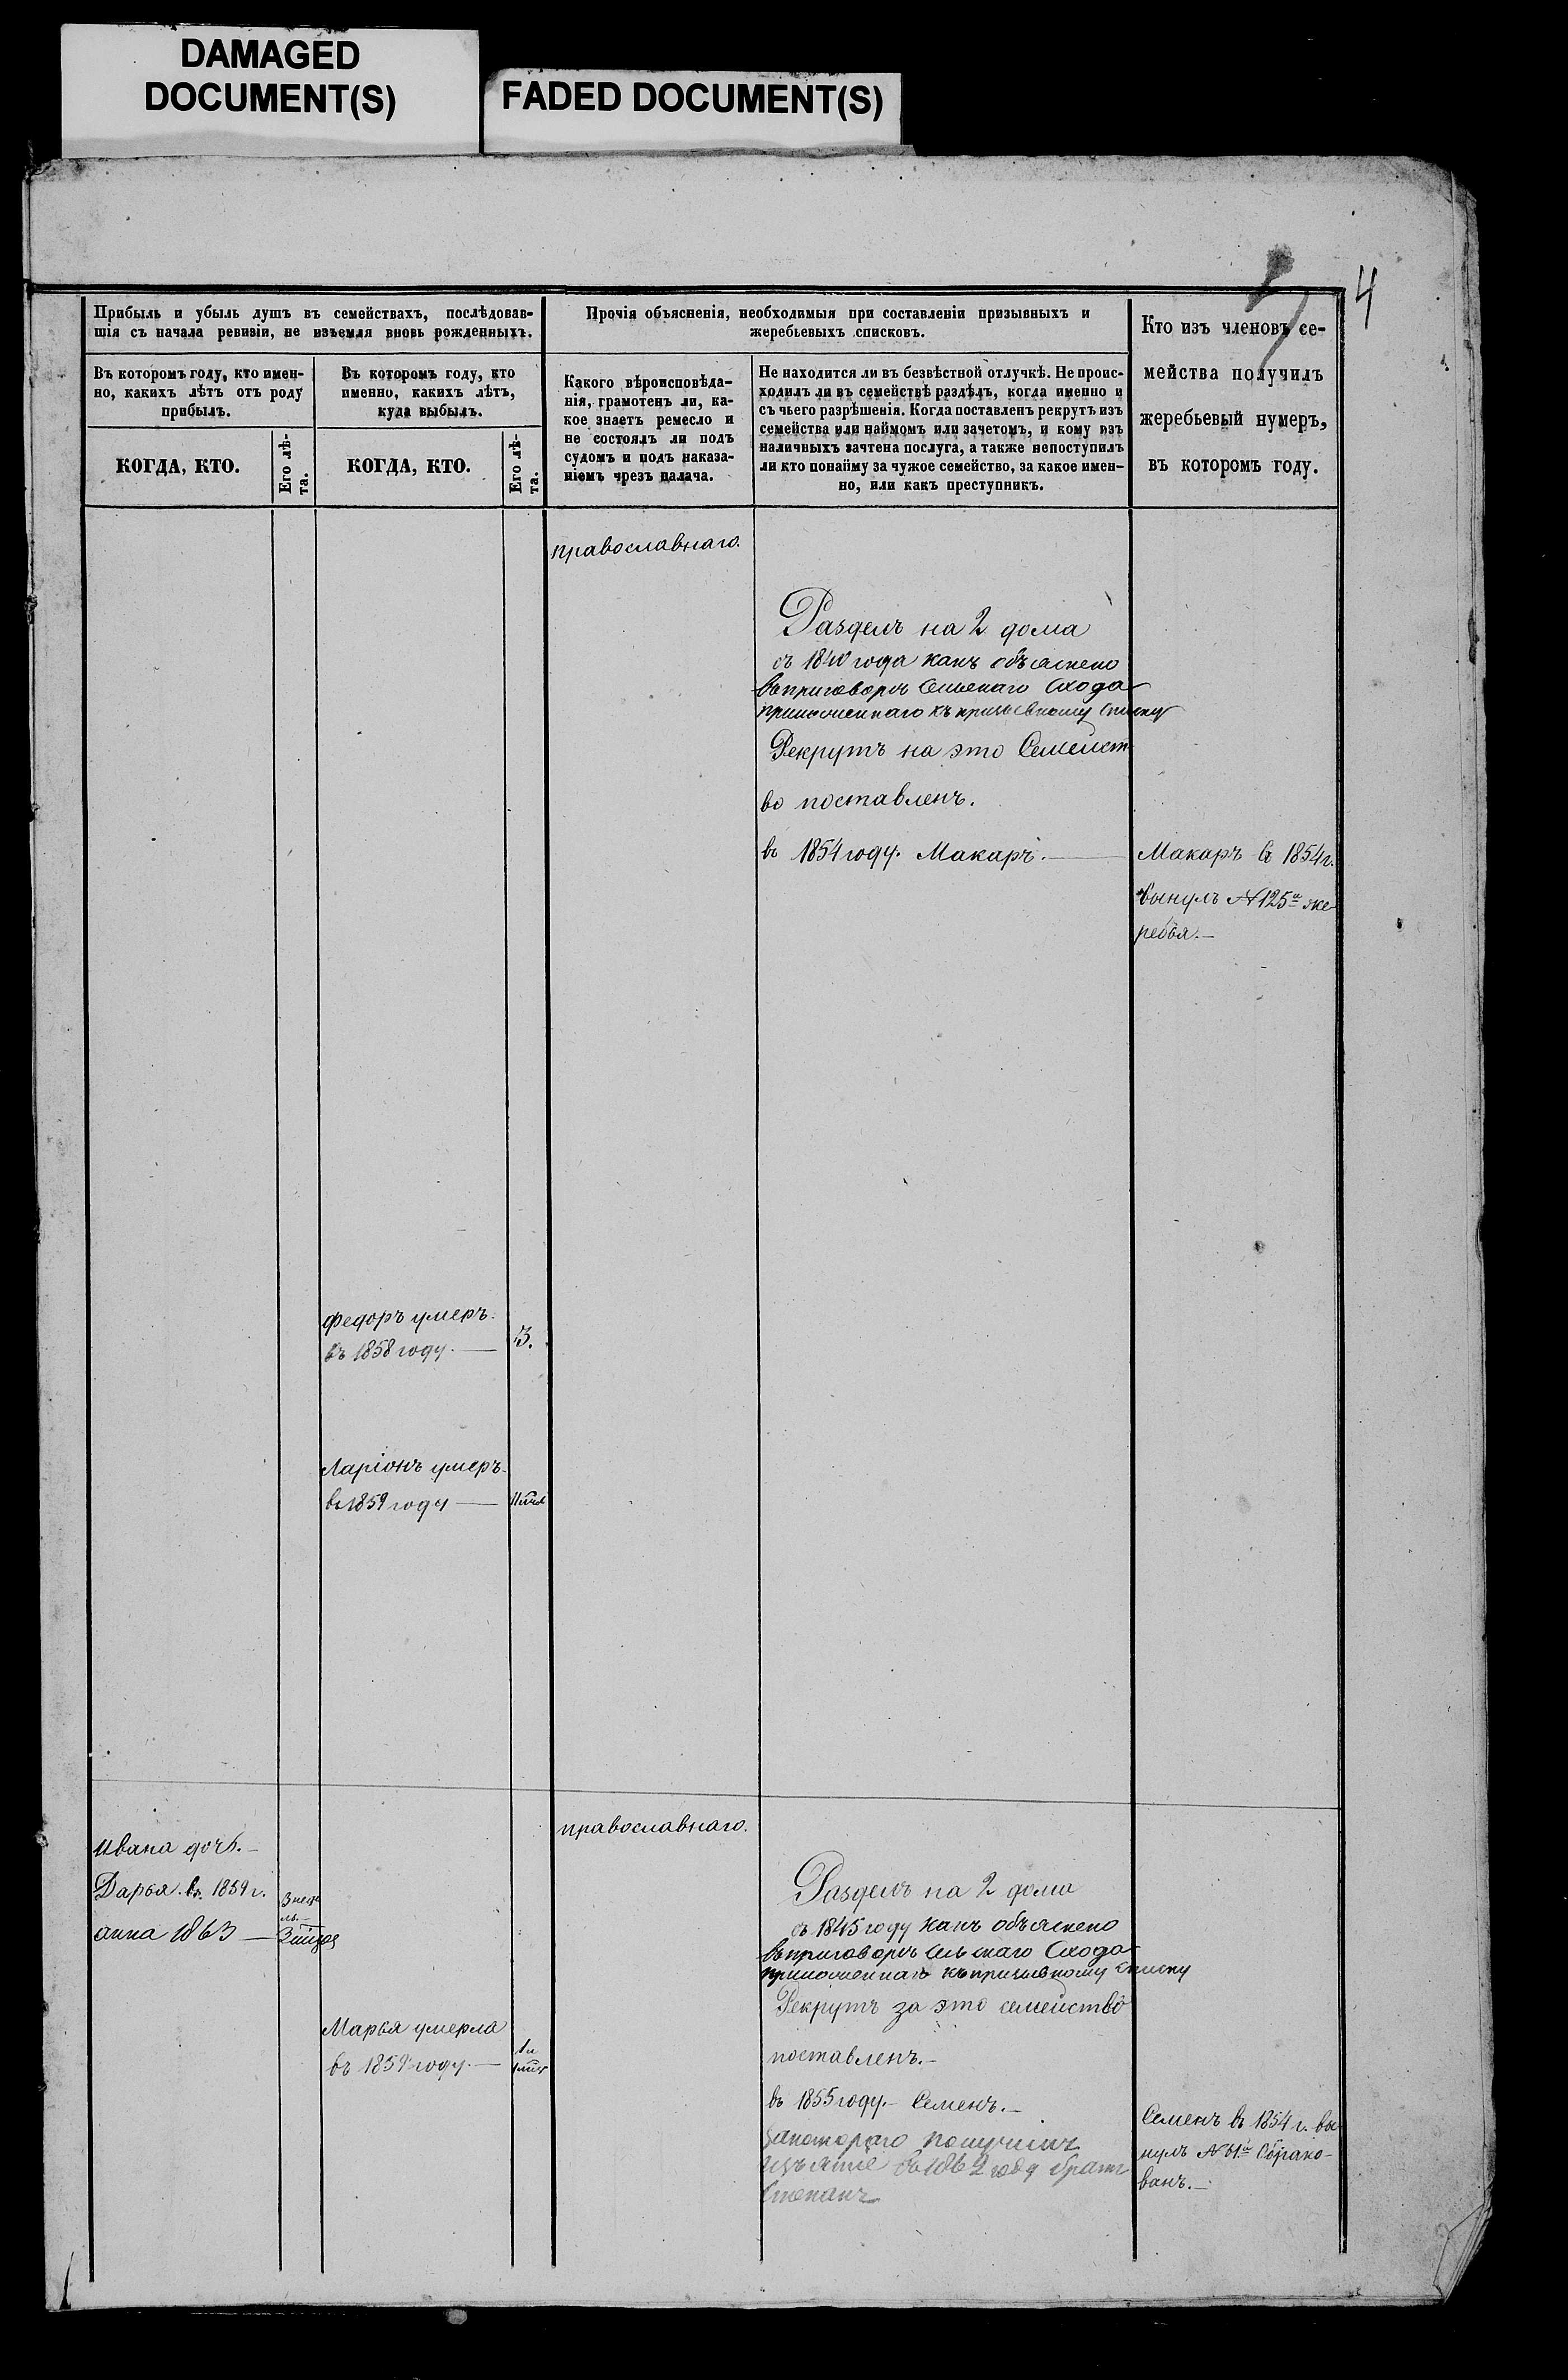 DAMAGED
DOCUMENT(S)
FADED DOCUMENT(S)
4
Прибыль и убыль душъ въ семействахъ, послѣдовав-
шія съ начала ревизіи, не изъемля вновь рожденныхъ.
Въ которомъ году, кто имен-
но, какихъ лѣтъ отъ роду
прибылъ.
КОГДА, КТО.
Его лѣ-
та.
Въ которомъ году, кто
именно, какихъ лѣтъ,
куда выбылъ.
КОГДА, КТО.
Его лѣ-
та.
Прочія объясненія, необходимыя при составленіи призывныхъ и
жеребьевыхъ списковъ.
Какого вѣроисповѣда-
нія, грамотенъ ли, ка-
кое знаетъ ремесло и
не состоялъ ли подъ
судомъ и подъ наказа-
ніемъ чрезъ палача.
Не находится ли въ безвѣстной отлучкѣ. Не проис-
ходилъ ли въ семействѣ раздѣлъ, когда именно и
съ чьего разрѣшенія. Когда поставленъ рекрутъ изъ
семейства или наймомъ или зачетомъ, и кому изъ
наличныхъ зачтена послуга, а также непоступилъ
ли кто понайму за чужое семейство, за какое имен-
но, или какъ преступникъ.
Кто изъ членовъ се-
мейства получилъ
жеребьевый нумеръ,
въ которомъ году.
православнаго.
Разделъ на 2 дома
съ 1840 года какъ объяснено
въ приговоре Сельскаго Схода
приложеннаго къ призывному списку
Рекрутъ на это Семейст
во поставленъ.
въ 1854 году. Макаръ.—
Макаръ въ 1854 г.
вынулъ № 125й же
ребья.—
Федоръ умеръ.
въ 1858 году.—
3.
Ларіонъ умеръ.
въ 1859 году —
православнаго.
Ивана дочь.—
Дарья. въ. 1859 г.
3 неде
ль.—
анна 1863 —
Марья умерла
въ 1859 году.—
Разделъ на 2 дома
съ 1845 году какъ объяснено
въ приговоре Сельскаго Схода
приложеннаго къ призывному списку
Рекрутъ за это семейство
поставленъ.—
въ 1855 году.— Семенъ.—
закотораго получилъ
въ 1862 году братъ
Степанъ
Семенъ въ 1854 г. вы
нулъ № 61й Обрако-
ванъ.—